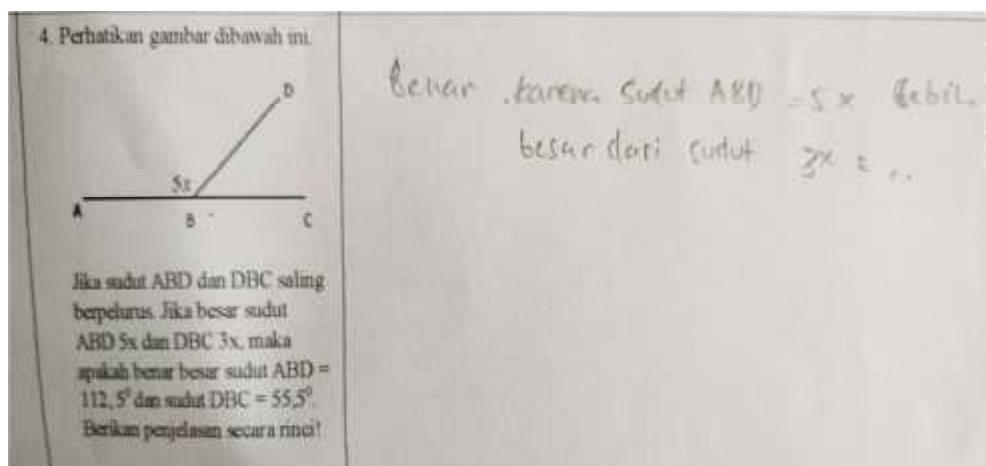 4. Perhatikan gambar dibawah ini.
D
5x
A
B
C
Jika sudut ABD dan DBC saling
berpelurus. Jika besar sudut
ABD 5x dan DBC 3x, maka
apakah benar besar sudut ABD =
112, 5⁰ dan sudut DBC = 55,5⁰.
Berikan penjelasan secara rinci!
Benar . karena sudut ABD = 5x lebih
besar dari sudut 3x = ..